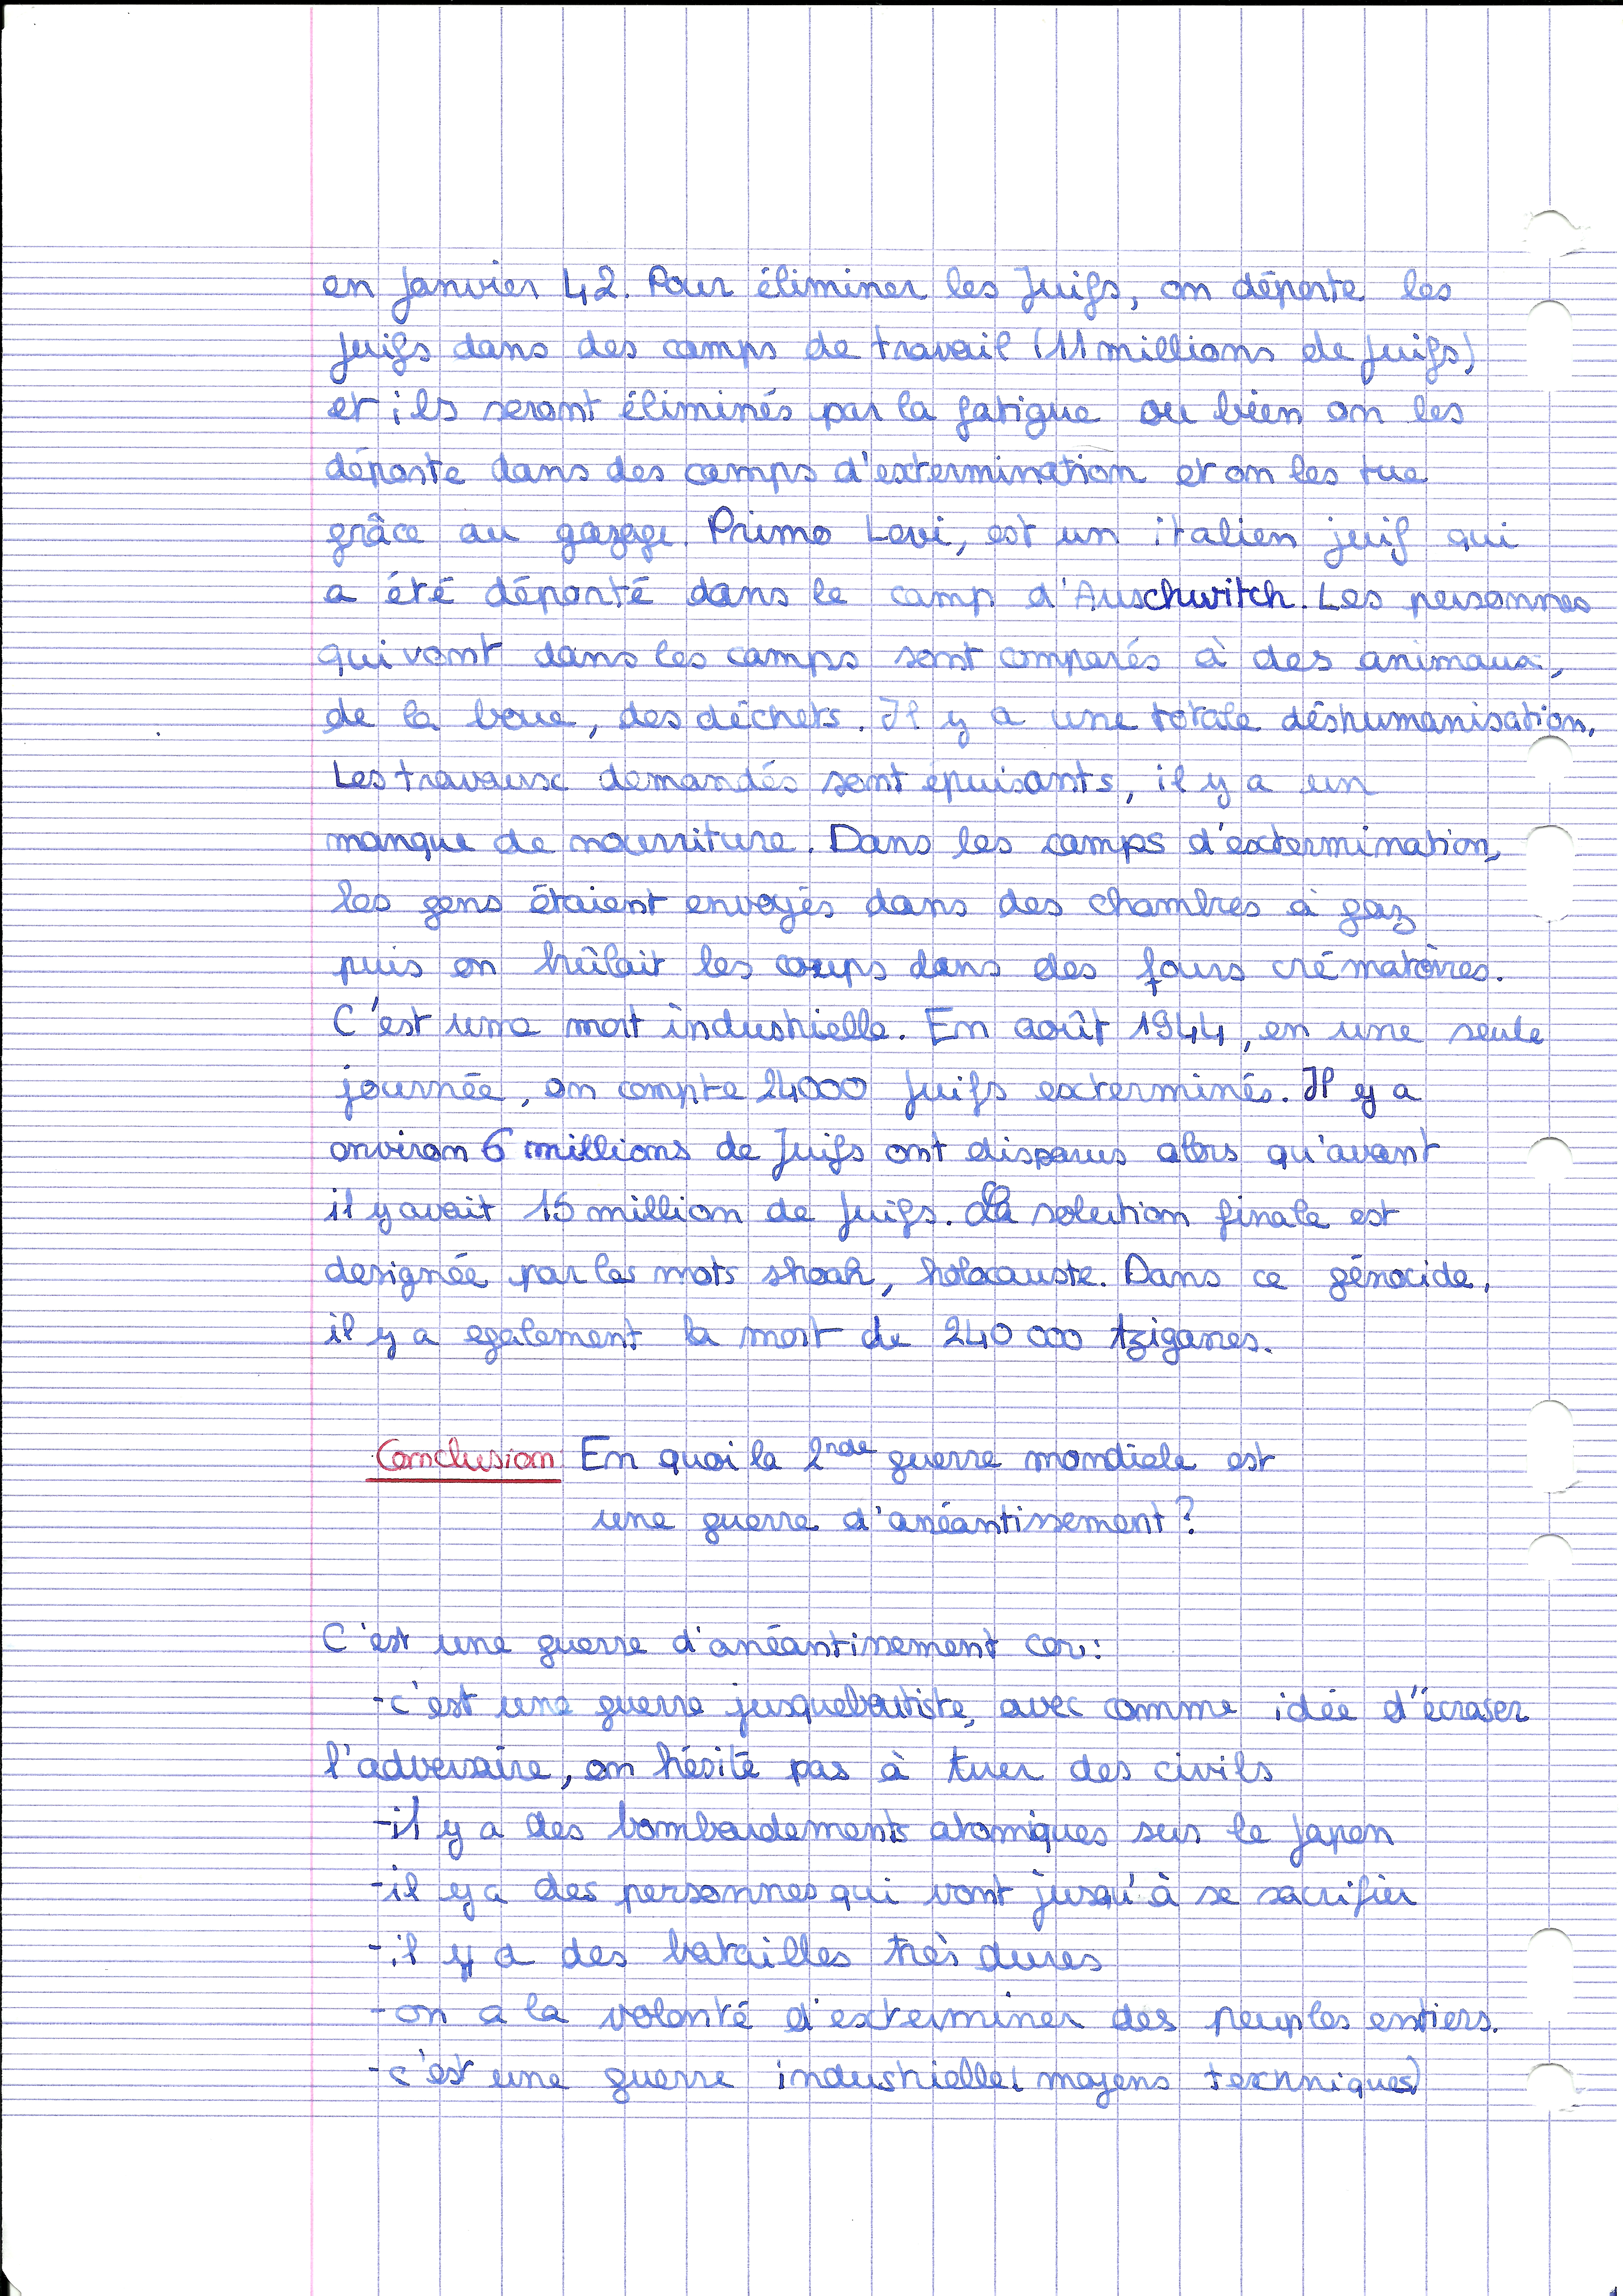 en janvier 42. Pour éliminer les Juifs, on déporte les
juifs dans des camps de travail (11 millions de juifs)
et ils seront éliminés par la fatigue ou bien on les
déporte dans des camps d'extermination et on les tue
grâce au gazage. Primo Levi, est un italien juif qui
a été déporté dans le camp d'Auschwitch. Les personnes
qui vont dans les camps sont comparés à des animaux,
de la boue, des déchets. Il y a une totale déshumanisation.
Les travaux demandés sont épuisants, il y a un
manque de nourriture. Dans les camps d'extermination,
les gens étaient envoyés dans des chambres à gaz
puis on brûlait les corps dans des fours crématoires.
C'est une mort industrielle. En août 1944, en une seule
journée, on compte 24000 juifs exterminés. Il y a
environ 6 millions de Juifs ont disparus alors qu'avant
il y avait 15 million de juifs. La solution finale est
designée par les mots shoah, holocauste. Dans ce génocide,
il y a egalement la mort de 240 000 tziganes.
Conclusion En quoi la 2nde guerre mondiale est
une guerre d'anéantissement ?
C'est une guerre d'anéantissement car :
- c'est une guerre jusqueboutiste, avec comme idée d'écraser
l'adversaire, on hésite pas à tuer des civils
- il y a des bombardements atomiques sur le Japon
- il y a des personnes qui vont jusqu'à se sacrifier
- il y a des batailles très dures
- on a la volonté d'exterminer des peuples entiers.
- c'est une guerre industrielle (moyens techniques)